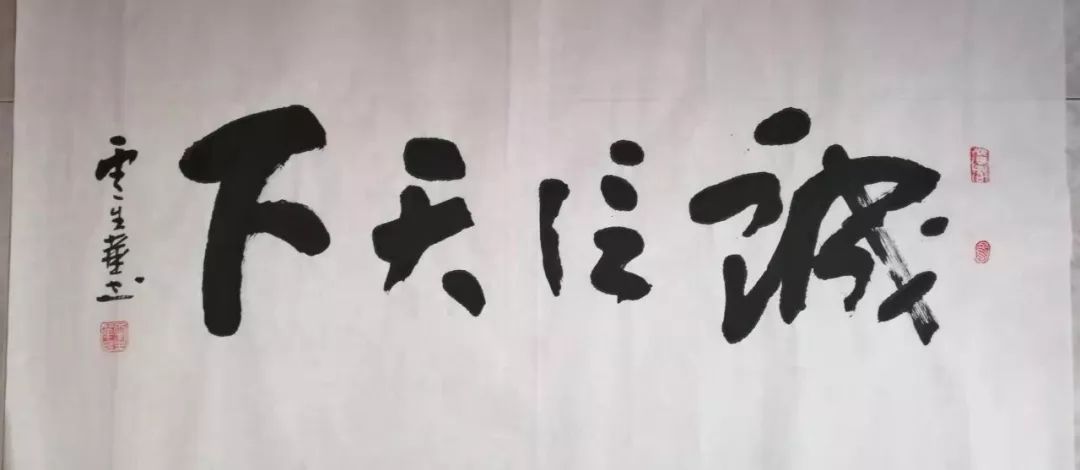 誠信天下
雲生華书